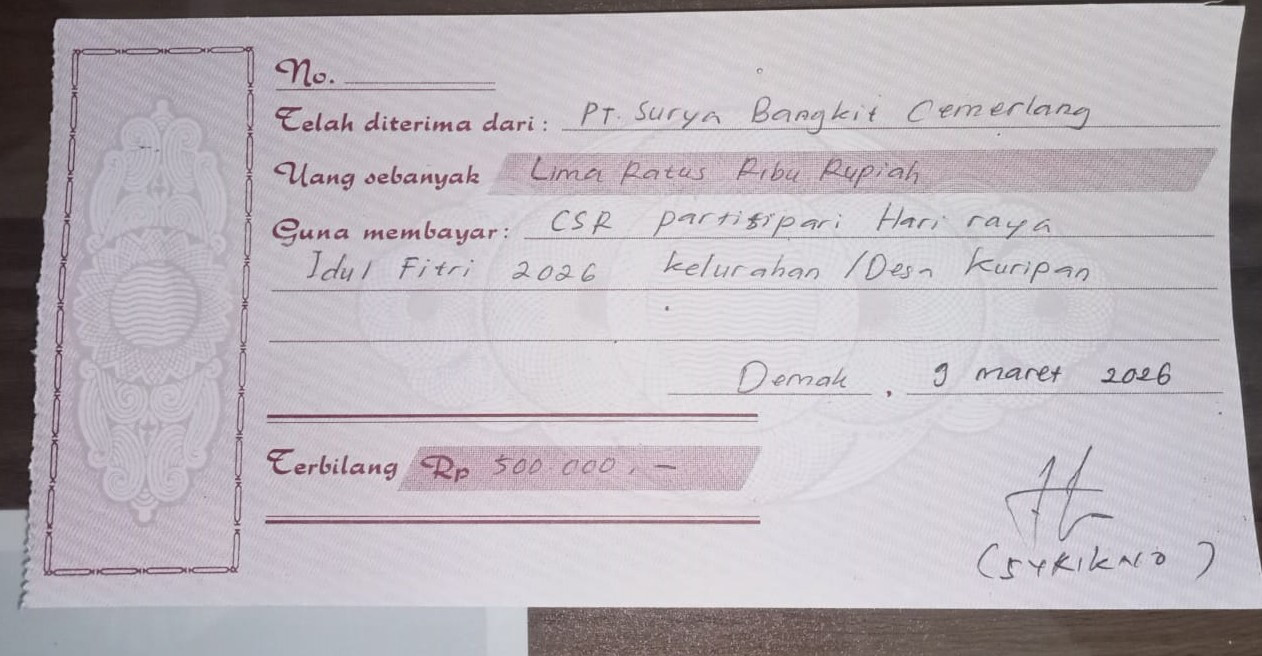 No.
Telah diterima dari : PT. Surya Bangkit Cemerlang
Uang sebanyak Lima Ratus Ribu Rupiah
Guna membayar : CSR partisipari Hari raya
Idul Fitri 2026 kelurahan / Desa Kuripan
Demak , 9 maret 2026
Terbilang Rp 500.000,-